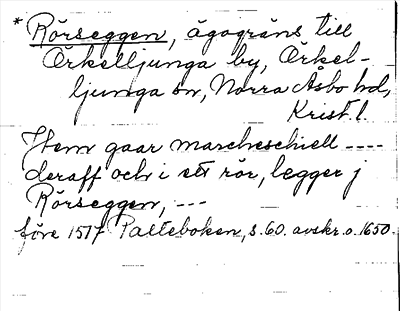 * Rörseggen, ägogräns till
Örkelljunga by, Örkel-
ljunga sn, Norra Åsbo hd,
Krist. l.
Item gaar marcheschiell ----
deraff och i ett rör, legger j
Rörseggen, ---
före 1517 Palteboken, s. 60. avskr. o. 1650.